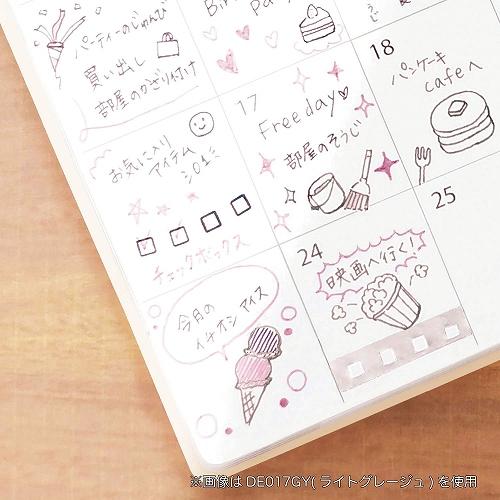 パーティーのじゅんび
買い出し
部屋のかざり付け
17
Free day♡
部屋のそうじ
18
パンケーキ
cafeへ
お気に入り
アイテム
チェックボックス
24
映画へ行く!
25
今月の
イチオシ アイス
※画像はDE017GY(ライトグレージュ)を使用